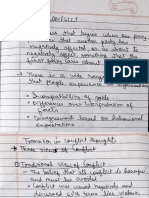 CONFLICT
process that begins when one party
perceives that another party has
negatively affected or is about to
negatively affect, something that the
first party cares about
→ There is a wide range of
that people experience in organization
→ Incompatibility of goals
→ Difference over Interpretation of
facts
→ Disagreement based on behavioral
expectations
Transition in Conflict Thought
→ Three Views of Conflict
Traditional View of Conflict
→ The belief that all conflict is harmful
and must be avoided
→ Conflict was viewed negatively and
discussed with terms like violence,